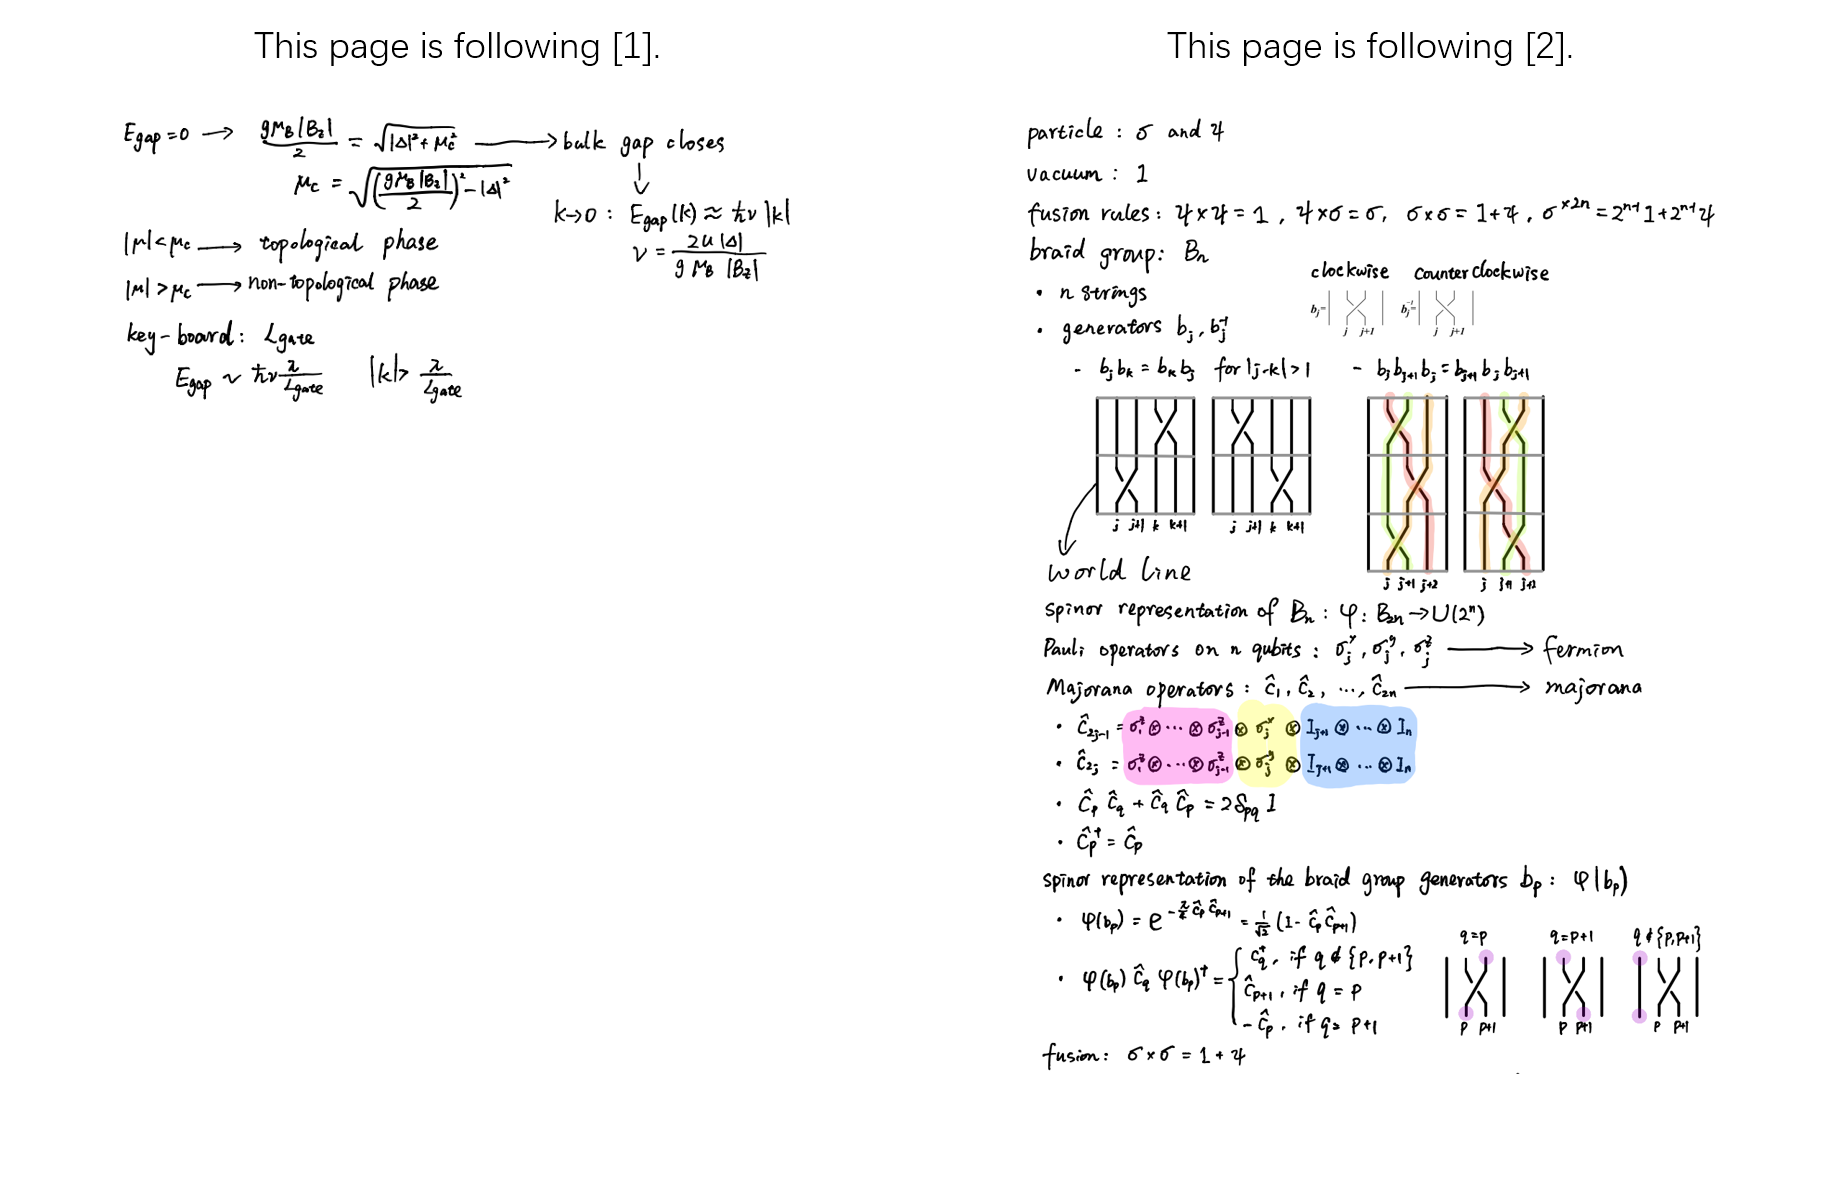 This page is following [1].
E_gap=0 → gμ_B|B_z|/2 = √(|Δ|²+μ_c²) → bulk gap closes
μ_c = √((gμ_B|B_z|/2)²-|Δ|²)
k→0 : E_gap(k) ≈ ħν|k|
ν = 2u|Δ|/gμ_B|B_z|
|μ|<μ_c → topological phase
|μ|>μ_c → non-topological phase
key-board: L_gate
E_gap ~ ħν π/L_gate |k|> π/L_gate
This page is following [2].
particle : σ and ψ
vacuum : 1
fusion rules: ψ×ψ=1, ψ×σ=σ, σ×σ=1+ψ, σ^×2n=2^n-1 1+2^n-1 ψ
braid group: B_n
• n strings
• generators b_j, b_j^-1
clockwise counterclockwise
b_j= b_j^-1=
j j+1 j j+1
- b_j b_k = b_k b_j for |j-k|>1 - b_j b_j+1 b_j = b_j+1 b_j b_j+1
j j+1 k k+1 j j+1 k k+1
j j+1 j+2 j j+1 j+2
World line
Spinor representation of B_n : φ: B_2n→U(2^n)
Pauli operators on n qubits : σ_j^x, σ_j^y, σ_j^z → fermion
Majorana operators : ĉ_1, ĉ_2, ..., ĉ_2n → majorana
• ĉ_2j-1 = σ_1^z⊗...⊗σ_j-1^z⊗σ_j^x⊗I_j+1⊗...⊗I_n
• ĉ_2j = σ_1^z⊗...⊗σ_j-1^z⊗σ_j^y⊗I_j+1⊗...⊗I_n
• ĉ_p ĉ_q + ĉ_q ĉ_p = 2δ_pq I
• ĉ_p^† = ĉ_p
spinor representation of the braid group generators b_p : φ(b_p)
• φ(b_p) = e^-π/4 ĉ_p ĉ_p+1 = 1/√2 (1-ĉ_p ĉ_p+1)
• φ(b_p) ĉ_q φ(b_p)^† = { c_q^†, if q∉{p,p+1}
ĉ_p+1, if q = p
-ĉ_p, if q= p+1
q=p q=p+1 q∉{p,p+1}
p p+1 p p+1 p p+1
fusion: σ×σ = 1+ψ